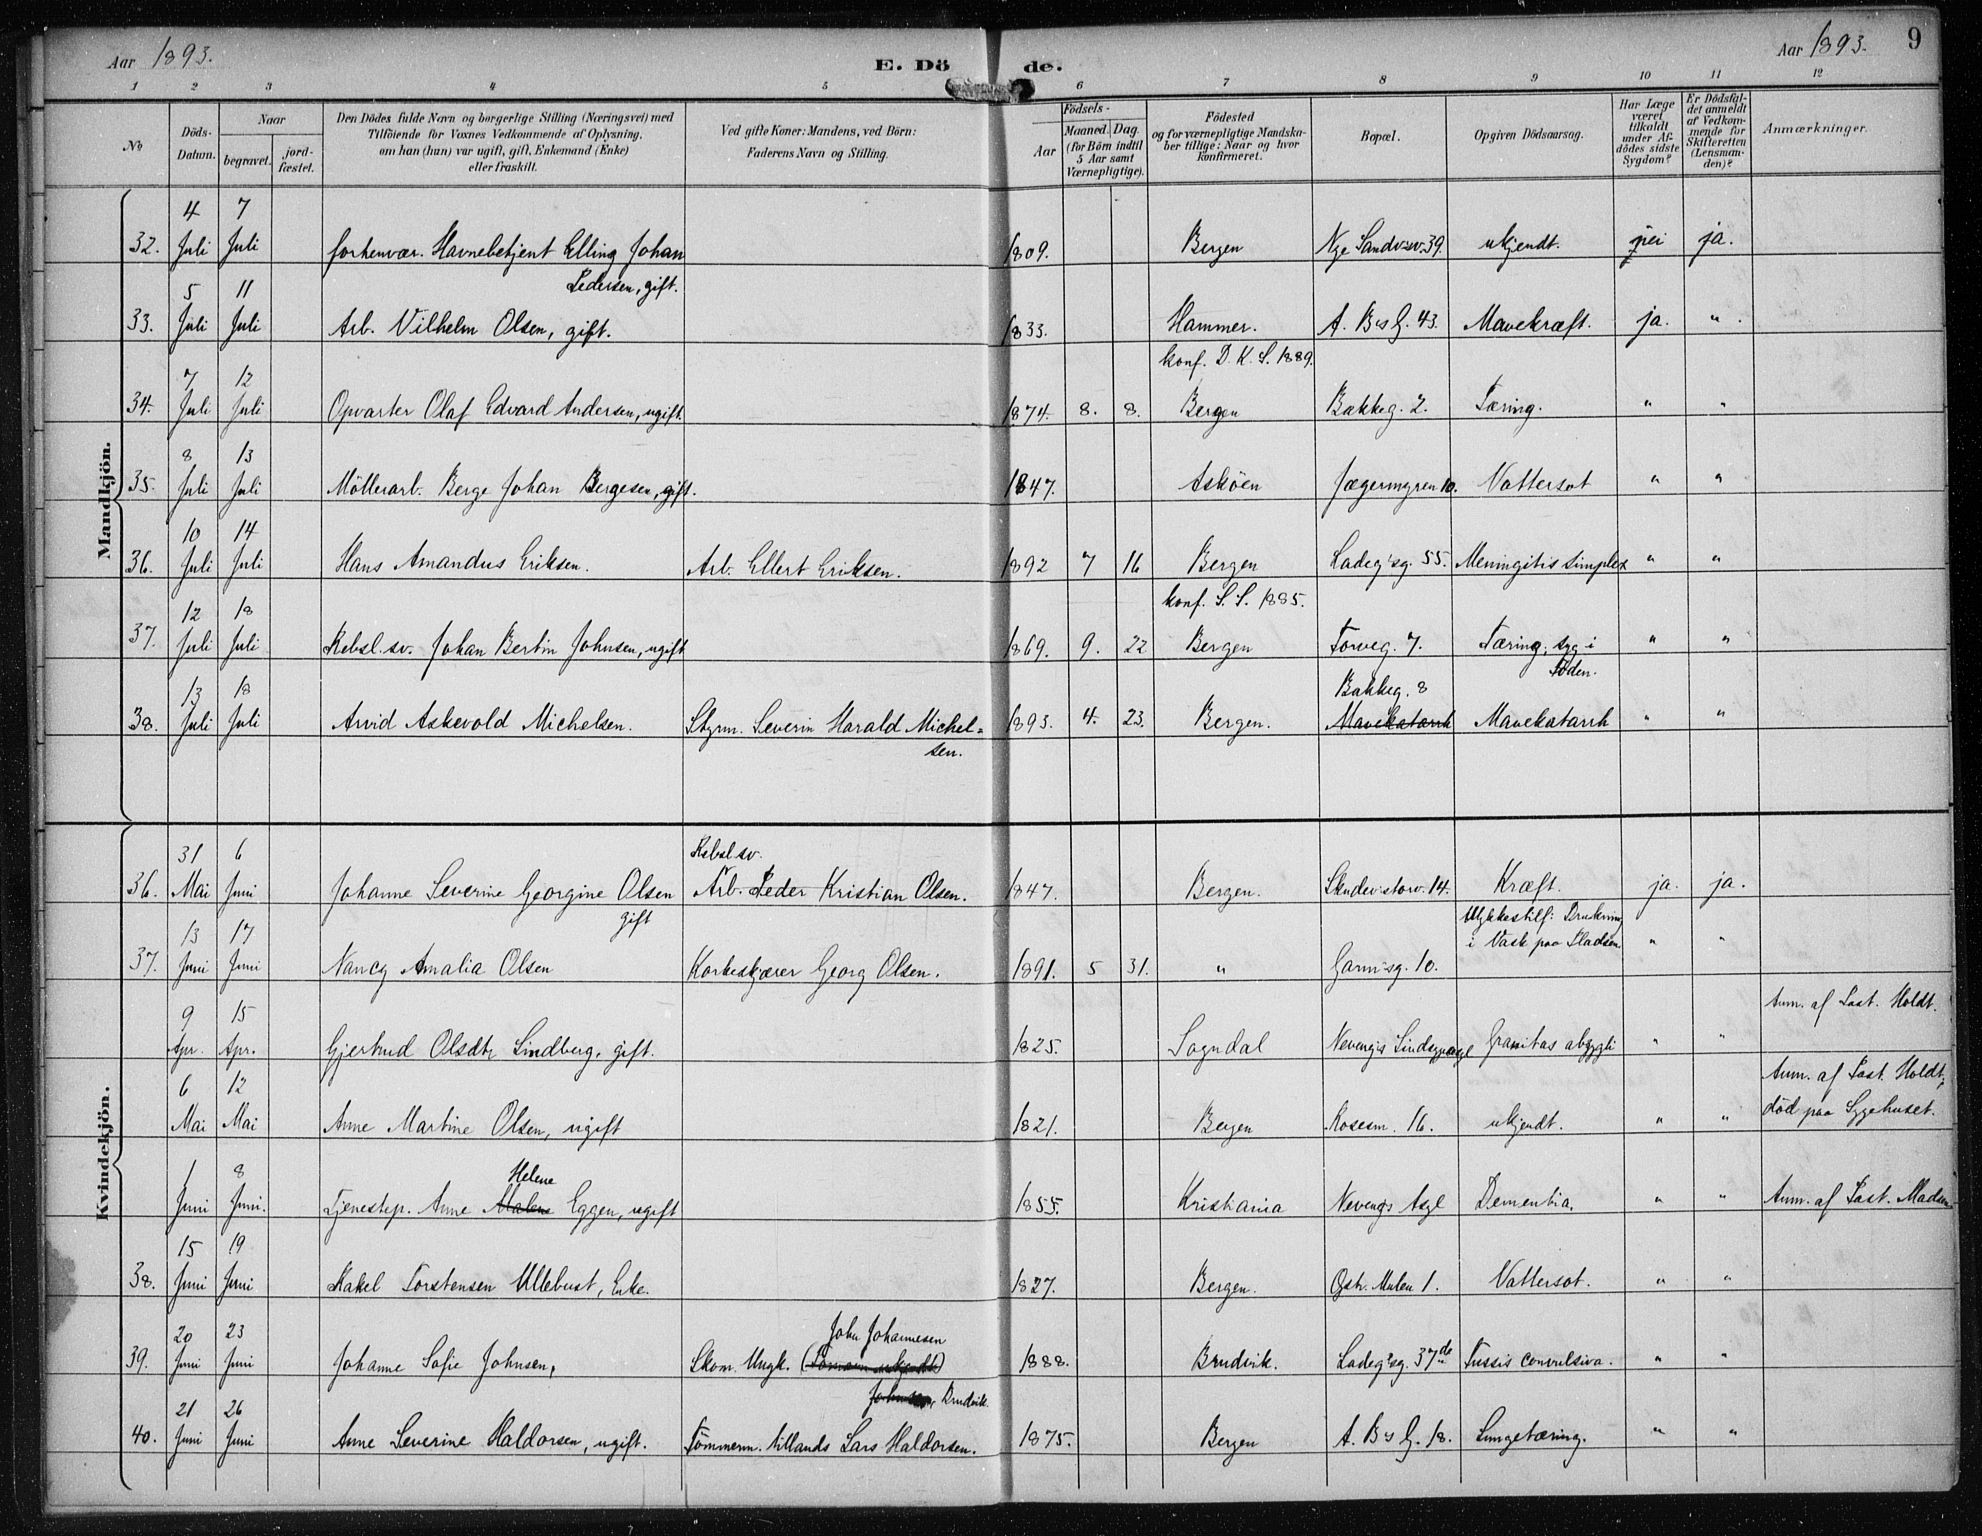 Aar 1893. E. Döde. Aar 1893. 9
1 2 3 4 5 6 7 8 9 10 11 12
No Döds-Datum. Naar begravet. jord-fæstet. Den Dödes fulde Navn og borgerlige Stilling (Næringsvei) med Tilföiende for Voxnes Vedkommende af Oplysning, om han (hun) var ugift, gift, Enkemand (Enke) eller fraskilt. Ved gifte Koner: Mandens, ved Börn: Faderens Navn og Stilling. Födsels- Aar Maaned. Dag. (for Börn indtil 5 Aar samt Værnepligtige). Födested og for værnepligtige Mandska-ber tillige: Naar og hvor konfirmeret. Bopæl. Opgiven Dödsaarsag. Har Læge været tilkaldt under Af-dödes sidste Sygdom? Er Dödsfal-det anmeldt af Vedkom-mende for Skifteretten (Lensman-den)? Anmærkninger.
Mandkjön.
32. 4 Juli 7 Juli forhenvær. Havnebetjent Elling Johan Pedersen, gift. 1809. Bergen Nye Sandv.sv. 39. ukjendt. nei ja.
33. 5 Juli 11 Juli Arb. Vilhelm Olsen, gift. 1833. Hammer. A. B's G. 43. Mavekræft. ja. "
34. 7 Juli 12 Juli Opvarter Olaf Edvard Andersen, ugift 1874. 8. 8. konf. D. K. S. 1889. Bergen Bakkeg. 2. Tæring. " "
35. 8 Juli 13 Juli Möllerarb. Berge Johan Bergesen, gift. 1847. Asköen Jægermyren 10. Vattersot " "
36. 10 Juli 14 Juli Hans Amandus Eriksen. Arb. Ellert Eriksen. 1892 7 16 Bergen Ladeg'sg. 55. Meningitis simplex " "
37. 12 Juli 18 Juli Rebsl.sv. Johan Bertin Johnsen, ugift 1869. 9. 22 konf. S. S. 1885. Bergen Torveg. 7. Tæring, syg i Foden. " "
38. 13 Juli 18 Juli Arvid Askevold Michelsen. Styrm. Severin Harald Michel=sen. 1893. 4. 23. Bergen. Bakkeg. 8 Mavekatarrh Mavekatarrh " "
Kvindekjön.
36. 31 Mai 6 Juni Johanne Severine Georgine Olsen gift Rebsl.sv. Arb. Peder Kristian Olsen. 1847. Bergen. Skudev.storv. 14. Kræft. ja. ja.
37. 13 Juni 17 Juni Nancy Amalia Olsen Korkeskjærer Georg Olsen. 1891. 5 31. " Garm.sg. 10. Ulykkestilf: Drukning i Vask paa Pladsen " "
9 Apr. 15 Apr. Gjertrud Olsdtr Lindberg, gift. 1825. Sogndal Nevengs Sindssygeasyl " " Anm. af Past. Holdt.
6 Mai 12 Mai Anne Martine Olsen, ugift 1821. Bergen Rosesm. 16. ukjendt. " " Anm. af Past. Holdt, död paa Sygehuset.
1 Juni 8 Juni. Tjenestep. Anne Malene Helene Eggen, ugift 1855. Kristiania Nevengs Asyl Dementia. " " Anm. af Past. Madsen
38. 15 Juni 19 Juni Rakel Torstensen Ullebust, Enke. 1827. Bergen. Östr. Mulen 1. Vattersot. " "
39. 20 Juni 23 Juni Johanne Sofie Johnsen, Skom. Ungk. John Johannesen (Fornavn ukjendt) Johnsen, Brudvik 1888. Brudvik. Ladeg'sg. 37 de Tussis convulsiva. " "
40. 21 Juni 26 Juni Anne Severine Haldorsen, ugift. Tömmerm. tillands Lars Haldorsen. 1875. Bergen A. B's G. 18. Lungetæring. " "